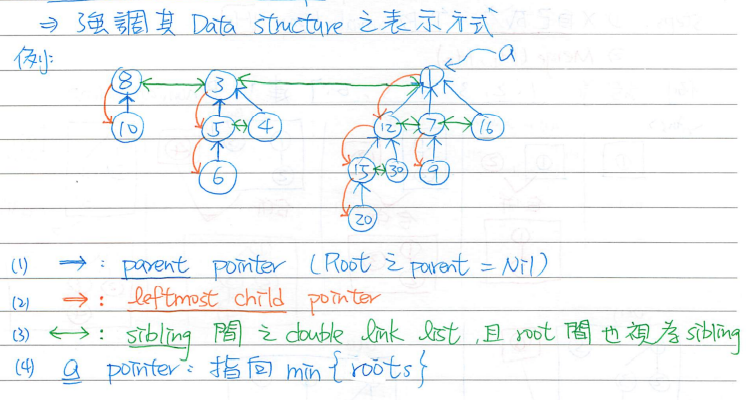 ⇒ 強調其 Data structure 之表示方式
例:
a
8 3 1
10 5 4 12 7 16
6 15 30 9
20
(1) → : parent pointer (Root 之 parent = Nil)
(2) → : leftmost child pointer
(3) ↔ : sibling 間之 double link list, 且 root 間也視為 sibling
(4) a pointer: 指向 min{roots}